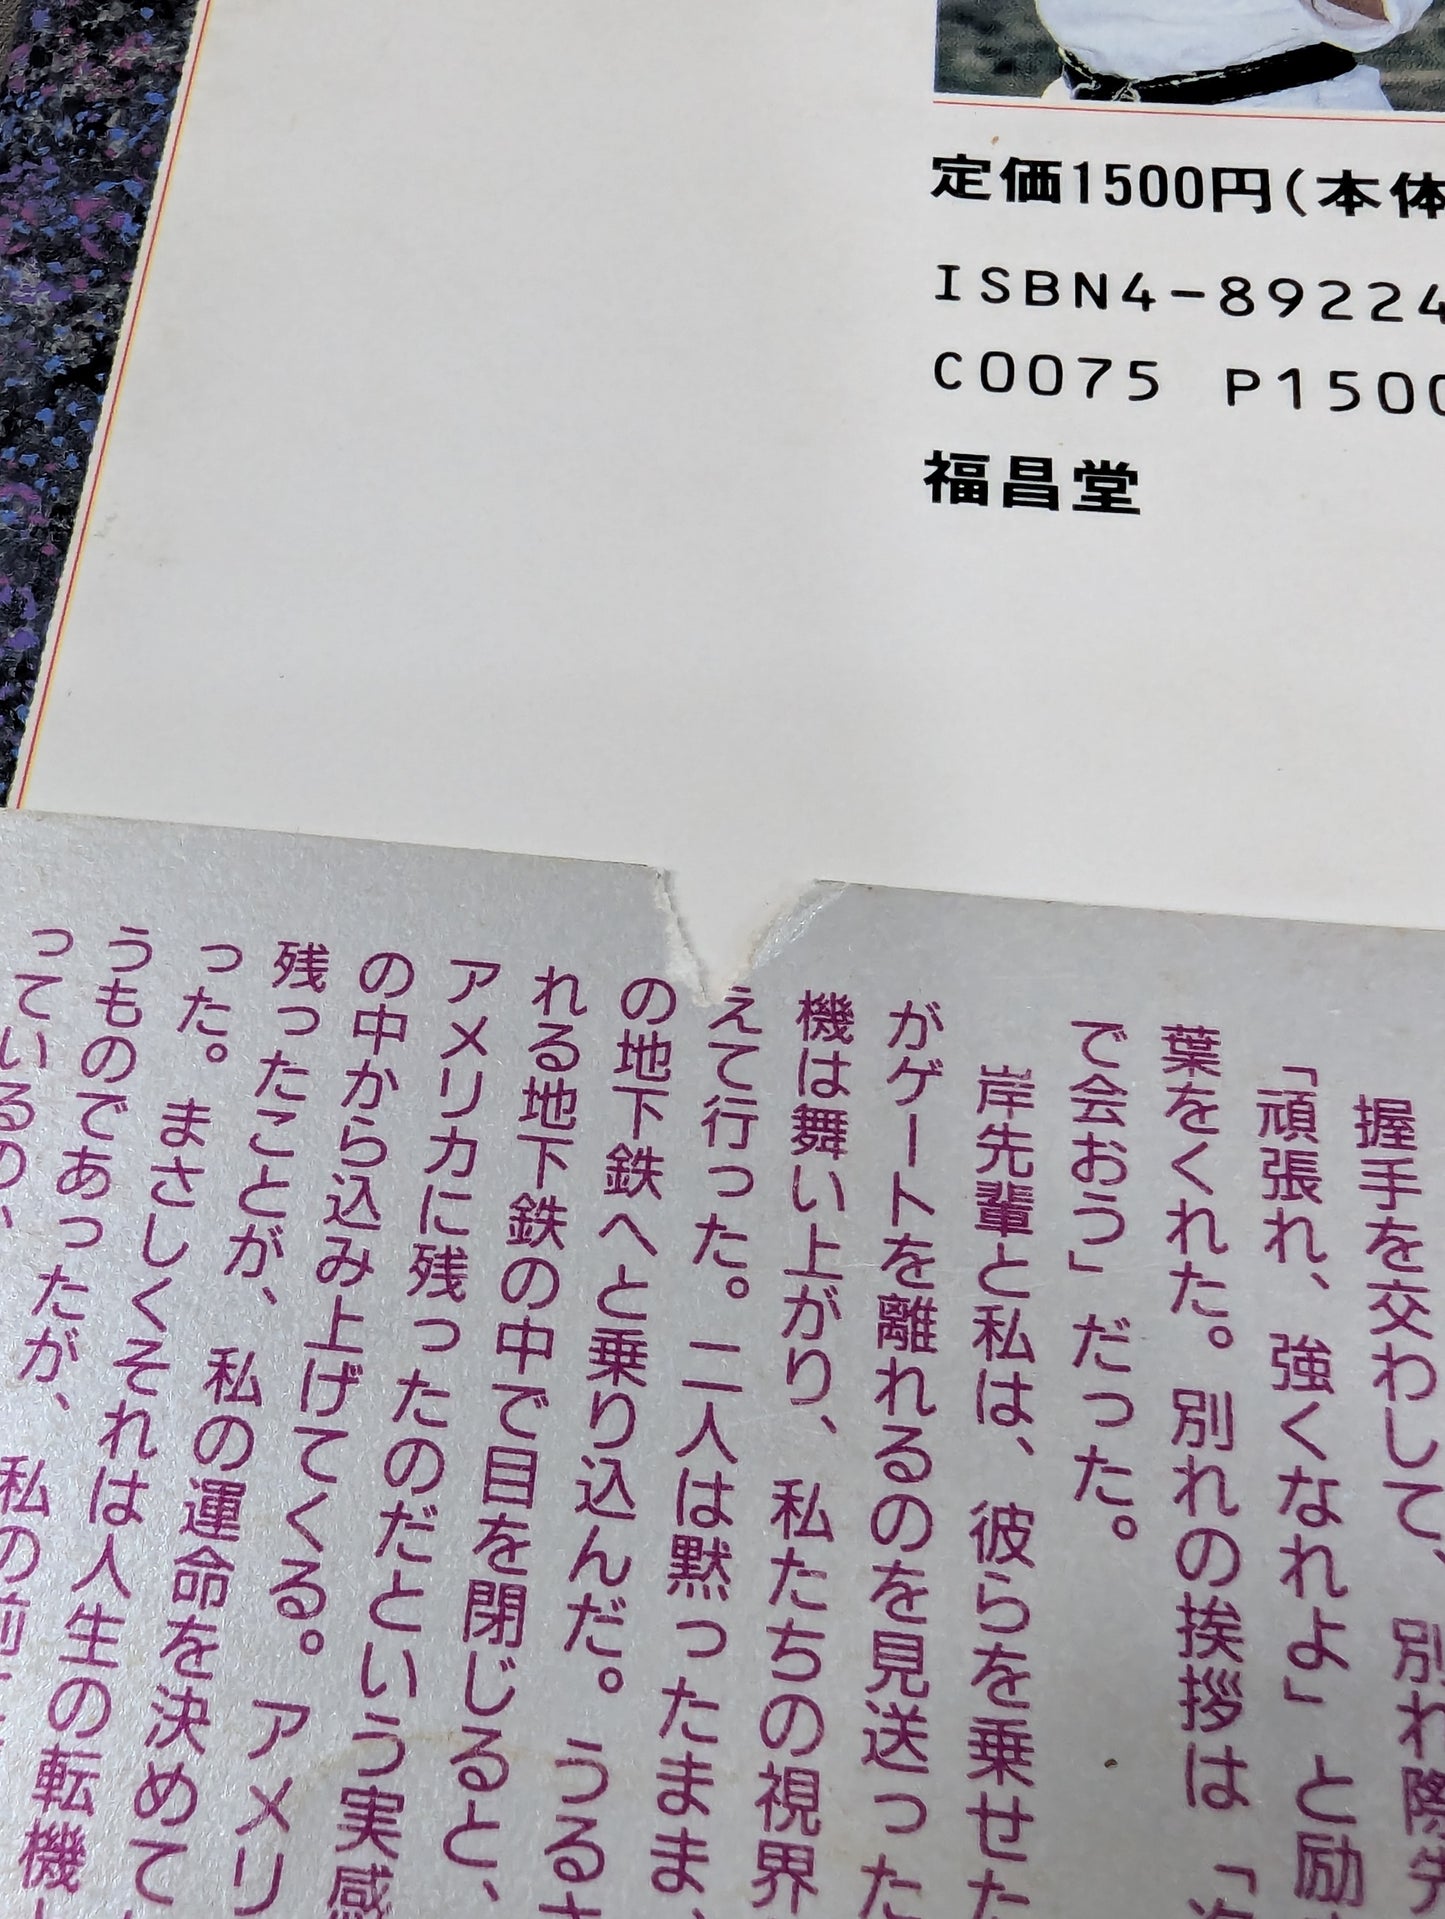 定価1500円(本体
ISBN4-89224
C0075 P1500
福昌堂
握手を交わして、別れ際
「頑張れ、強くなれよ」と励
葉をくれた。別れの挨拶は「
で会おう」だった。
岸先輩と私は、彼らを乗せた
がゲートを離れるのを見送った
機は舞い上がり、私たちの視界
えて行った。二人は黙ったまま、
の地下鉄へと乗り込んだ。うるさ
れる地下鉄の中で目を閉じると、
アメリカに残ったのだという実感
の中から込み上げてくる。アメリ
残ったことが、私の運命を決めて
った。まさしくそれは人生の転機
うものであったが、私の前
っているの、